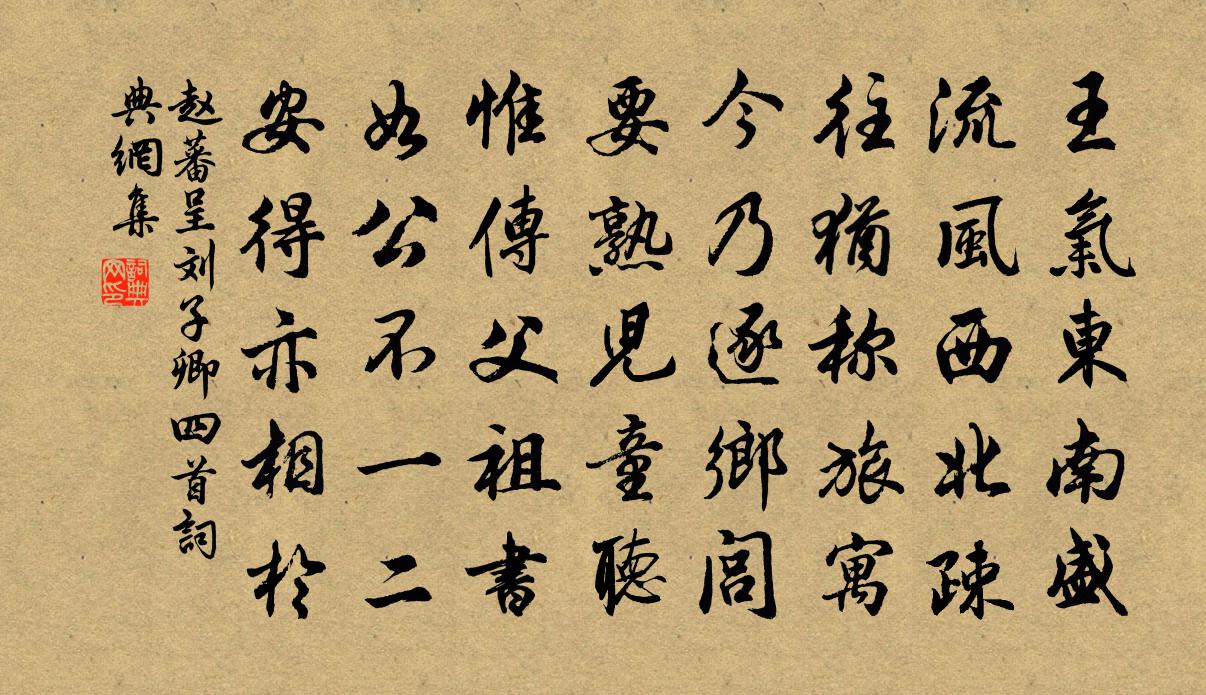 王氣東南盛
流風西北疎
往猶称旅寓
今乃逐鄉閭
要熟兒童聽
惟傳父祖書
如公不一二
安得亦相於
赵蕃呈刘子卿四首詞
典網集
詞典
网印